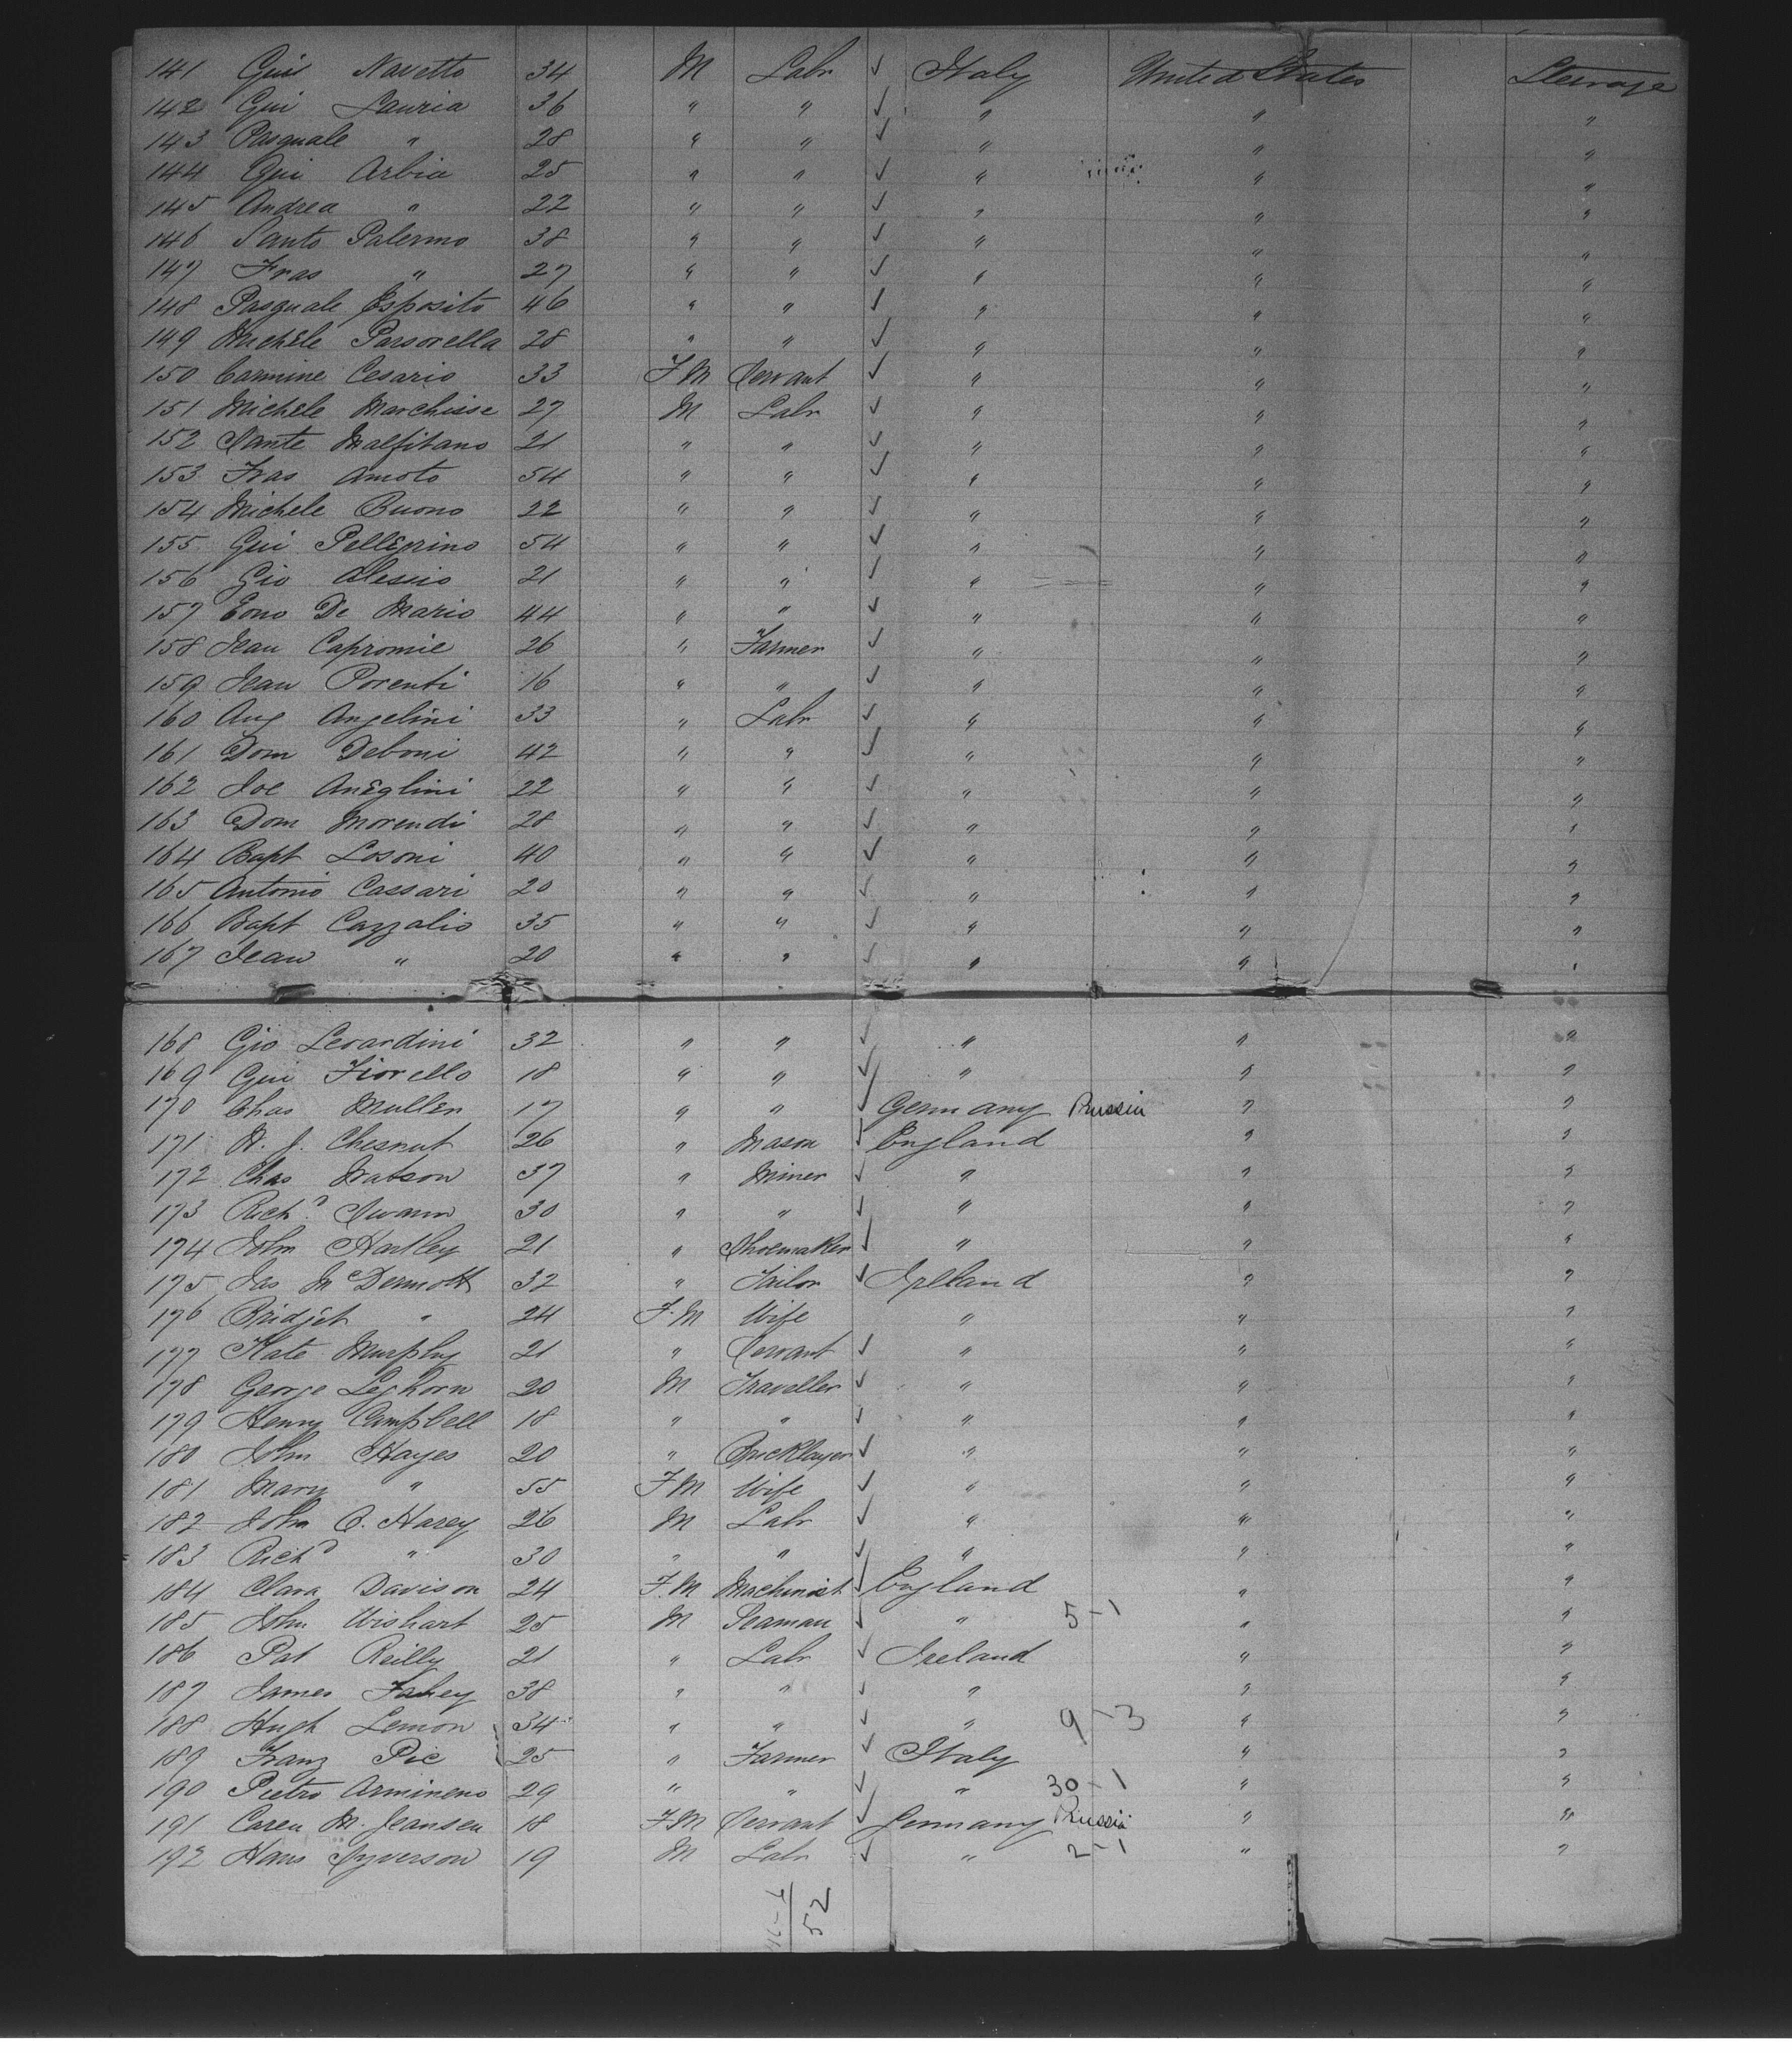 141 Guis Navetto 34 M Labr ✓ Italy United States Steerage
142 Gui Lauria 36 " " ✓ " " "
143 Pasquale " 28 " " ✓ " " "
144 Gui Arbia 25 " " ✓ " " "
145 Andrea " 22 " " ✓ " " "
146 Santo Palermo 38 " " ✓ " " "
147 Fras " 27 " " ✓ " " "
148 Pasquale Esposito 46 " " ✓ " " "
149 Michele Parsorella 28 " " ✓ " " "
150 Carmine Cesario 33 F M Servant ✓ " " "
151 Michele Marchisse 27 M Labr ✓ " " "
152 Sante Malfitano 21 " " ✓ " " "
153 Fras Amoto 54 " " ✓ " " "
154 Michele Buono 22 " " ✓ " " "
155 Gui Pellegrino 54 " " ✓ " " "
156 Gio Alessio 21 " " ✓ " " "
157 Eono De Mario 44 " " ✓ " " "
158 Jean Capromie 26 " Farmer ✓ " " "
159 Jean Porenti 16 " " ✓ " " "
160 Aug Angelini 33 " Labr ✓ " " "
161 Dom Deboni 42 " " ✓ " " "
162 Joe Aneglini 22 " " ✓ " " "
163 Dom Morendi 28 " " ✓ " " "
164 Bapt Losoni 40 " " ✓ " " "
165 Antonio Cassari 20 " " ✓ " " "
166 Bapt Cazzalio 35 " " ✓ " " "
167 Jean " 20 " " ✓ " " "
168 Gio Levardini 32 " " ✓ " " "
169 Gui Fiorello 18 " " ✓ " " "
170 Chas Muller 17 " " ✓ Germany Prussia " "
171 H. J. Chesnut 26 " Mason ✓ England " "
172 Chas Watson 37 " Miner ✓ " " "
173 Richd Swann 30 " " ✓ " " "
174 John Hartley 21 " Shoemaker ✓ " " "
175 Jas McDermott 32 " Tailor ✓ Irlland " "
176 Bridget " 24 F. M Wife " " "
177 Kate Murphy 21 " Servant ✓ " " "
178 George Leghorn 20 M Traveller ✓ " " "
179 Henry Campbell 18 " " ✓ " " "
180 John Hayes 20 " Bricklayer ✓ " " "
181 Mary " 55 F M Wife ✓ " " "
182 John O. Harey 26 M Labr ✓ " " "
183 Richd " 30 " " ✓ " " "
184 Clara Davison 24 F. M Machinist ✓ England " "
185 John Wishart 25 M Seaman ✓ " 5-1 " "
186 Pat Reilly 21 " Labr ✓ Ireland " "
187 James Fahey 38 " " ✓ " " "
188 Hugh Lemon 34 " " ✓ " 9-3 " "
189 Franz Pic 25 " Farmer ✓ Italy " "
190 Pietro Armineno 29 " " ✓ " 30-1 " "
191 Caren M. Jeansen 18 F M Servant ✓ Germany Prussia " "
192 Hans Syverson 19 M Labr ✓ " 2-1 " "
52